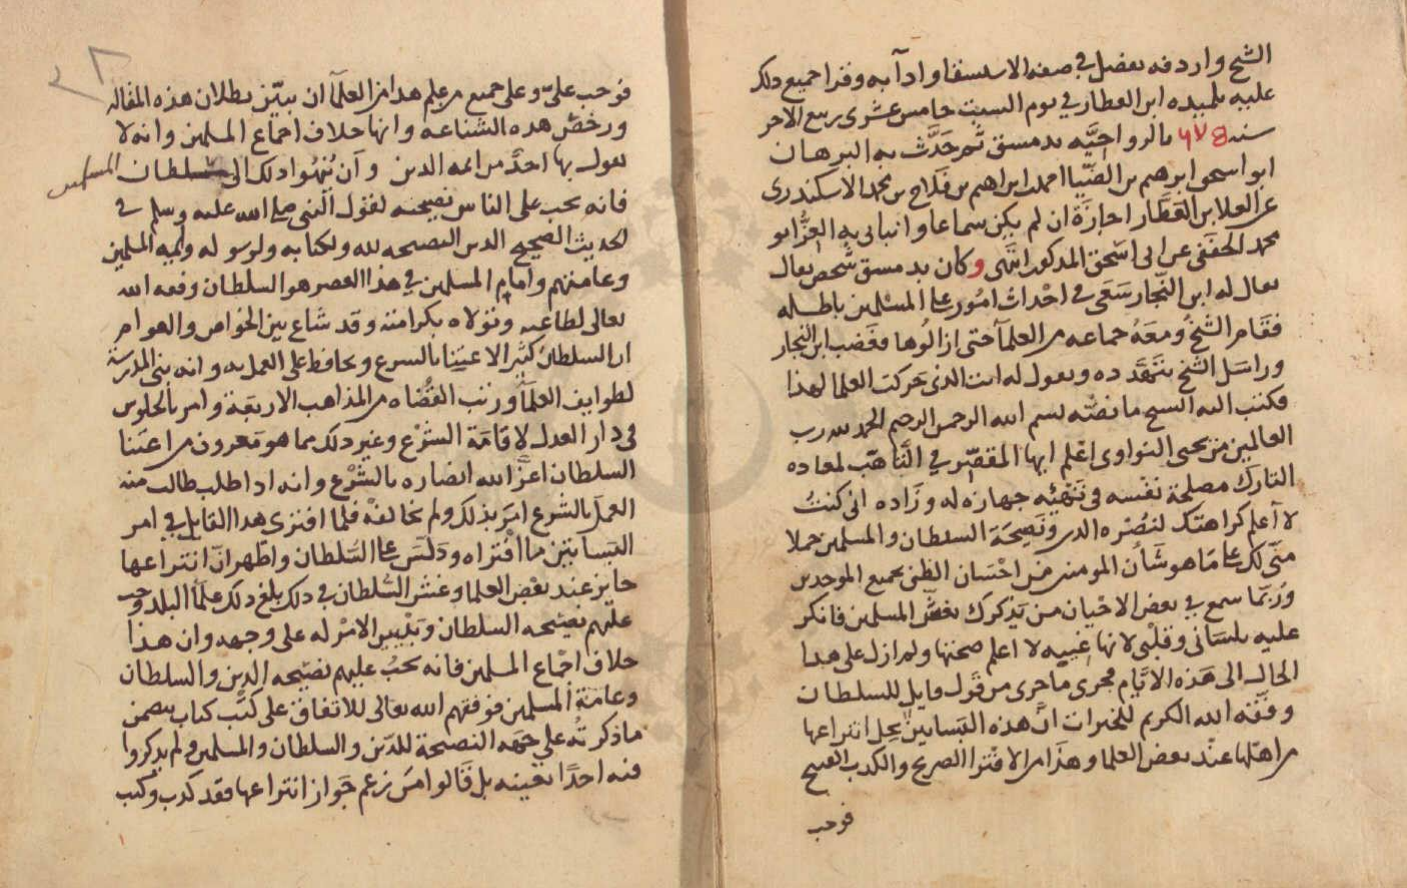 الشيخ واردفه بفصل في صفه الاستسقا وادآبه وقرا جميع ذلك
عليه تلميذه ابن العطار في يوم السبت خامس عشري ربيع الاخر
سنه ٦٧٤ بالرواحيَّه بدمشق ثم حَدَّث به البرهان
ابو اسحق ابرهيم بن الضيا احمد بن ابراهيم بن فلاح بن محمد الاسكندري
عن العلا بن العَطَّار اجازَة ان لم يكن سماعا وانباني به العِزُّ ابو
محمد الحنفي عن ابي اسحق المذكور انتهى وكان بدمشق شخص يقال
يقال له ابن النجار سَعَى في احْداث امُور على المسْلمين باطله
فقَام الشيخُ ومعَهُ جماعه من العلمآ حتى ازالُوها فغَضب ابن النجار
وراسَل الشيخ يتهَدده ويقول له انت الذي تحركت العلما لهذا
فكتب اليه الشيخ ما نصّه بسم الله الرحمن الرحيم الحمد لله رب
العالمين من يحيى النواوي اعْلم ايها المقصّر في التَّاهّب لمعاده
التارك مصلحة نفْسه في تَهْيئه جهازه له وزَاده اني كنتُ
لا أعلم كراهتك لنصْره الدين ونَصيحَة السلطان والمسلمين حملا
منّي لك على مَا هو شَأن المومنين من احْسَان الظن بجميع الموحدين
ورُبّما سمع في بعض الاحْيان من يَذكرك بغشّ المسلمين فانكر
عليه بلسَاني وقَلْبي لانها غيبه لا اعلم صحتها ولم ازل على هذا
الحال الى هَذه الايَّام فجرى ما جَرى من قَول قايل للسلطان
وفّقه الله الكريم للخيرات انَّ هذه البَساتين يحِل انتراعها
من اهلها عنْد بعض العلما وهذَا من الافْترا الصريح والكذب القبيح
فوجب
فوجب عليّ وعلى جميع من علم هذا من العلمآ ان يبيّن بطلان هذه المقاله
ودحْض هذه الشناعه وانها خلاف اجماع المسلمين وانه لا
يقول بها احدٌ من ايمه الدين وَأن يُنهُوا ذلك الى سلطان المسلمين
فانه يجب على الناس نصيحته لقول النبي صلى الله عليه وسلم في
الحديث الصحيح الدين النصيحه لله ولكتابه ولرسوله وايمه المسلمين
وعامتهم وامام المسلمين في هذا العصر هو السلطان وفقه الله
تعالى لطاعته وتولاه بكرامته وقد شَاع بين الخواص والعوام
ان السلطان كثير الاعتنا بالشرع ومحافظ على العمل به وانه بنى المدرسة
لطوايف العلمآ ورتب القُضاه من المذاهب الاربعَة وامر بالجلوس
في دار العدل لاقامَة الشرْع وغير ذلك مما هو مَعروف من اعتنا
السلطان اعزَّ الله انصاره بالشرْع وانه اذا طلب طالب منه
العمل بالشرع امَر بذلك ولم يخالفْه فلما افترى هذا القايل في امر
البسَاتين ما افْتراه ودَلّس على السّلطان واظهر انّ انتراعها
جايز عند بعْض العلما وغش السُّلطان في ذلك بلغ ذلك علمآ البلد وجب
عليهم نصيحه السلطان وتبيين الامْر له على وجهه وان هذا
خلاف اجْماع المسلمين فانه يجبُ عليهم نصيْحه الدين والسلطان
وعامّة المسلمين فوفقهم الله تعالى للاتفاق على كَتْب كتاب يتضمن
ماذكرتُه على جهَه النصيحة للدّين والسلطان والمسلمين ولم يذكروا
فيه احدًا بعينه بل قَالوا مَن زعم جَواز انتراعها فقد كذب وكتب